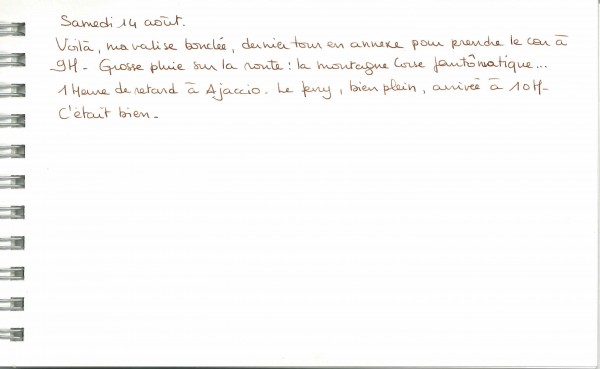 Samedi 14 août.
Voilà, ma valise bouclée, dernier tour en annexe pour prendre le car à
9H - Grosse pluie sur la route : la montagne Corse fantômatique...
1 Heure de retard à Ajaccio. Le ferry, bien plein, arrivée à 10H -
C'était bien -